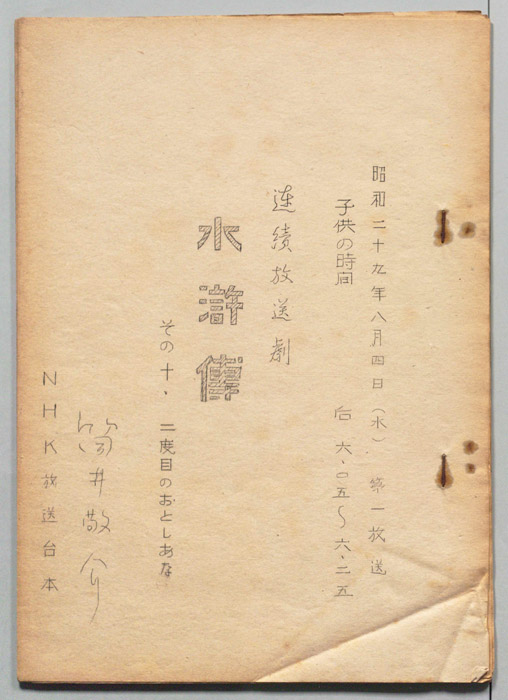 昭和二十九年八月四日（水） 第一放送
子供の時間 后 六.〇五〜六.二五
連続放送劇
水滸傳
その十、 二度目のおとしあな
筒井敬介
NHK放送台本